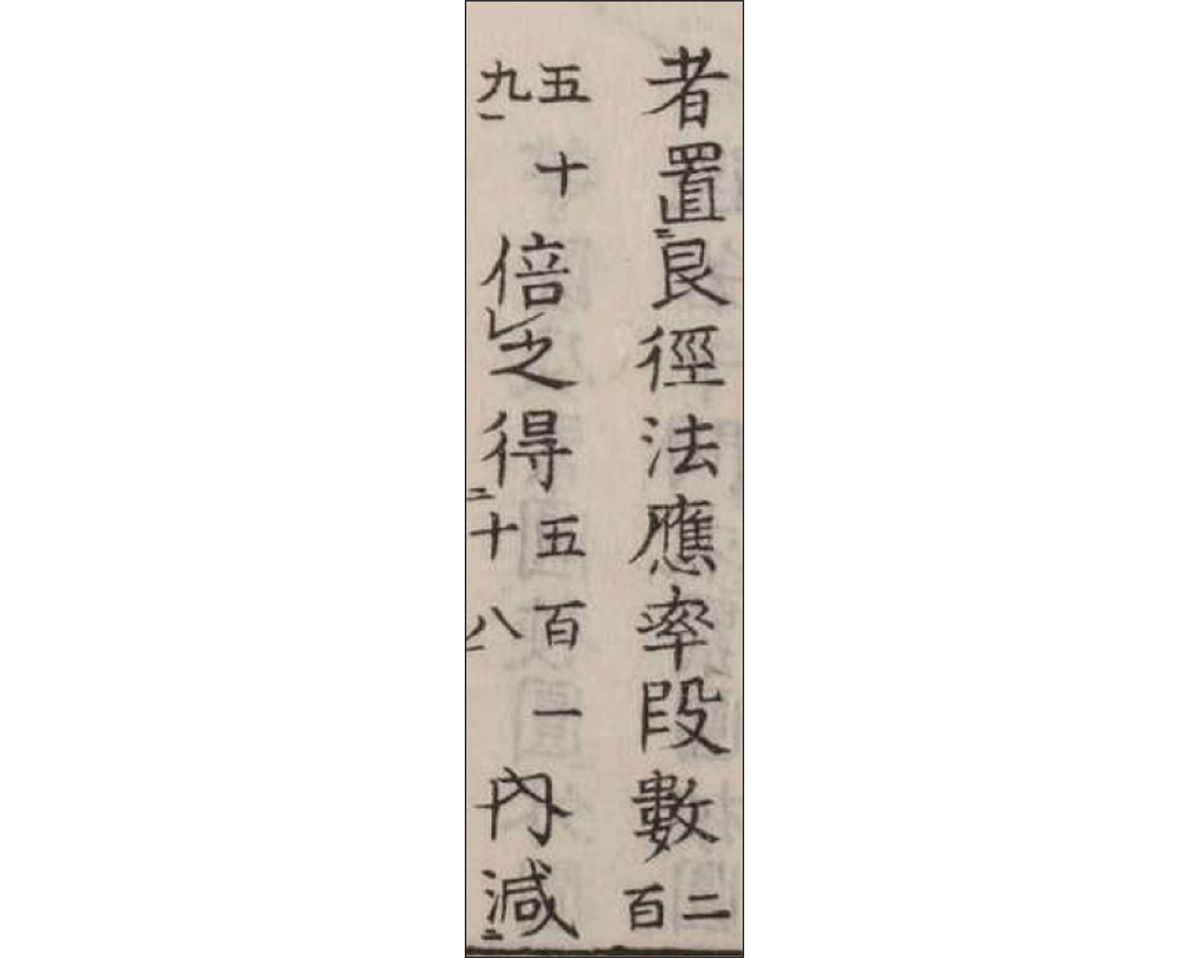 者置二艮徑法應率段數二百
五十九一倍レ之得二五百一十八一內減二